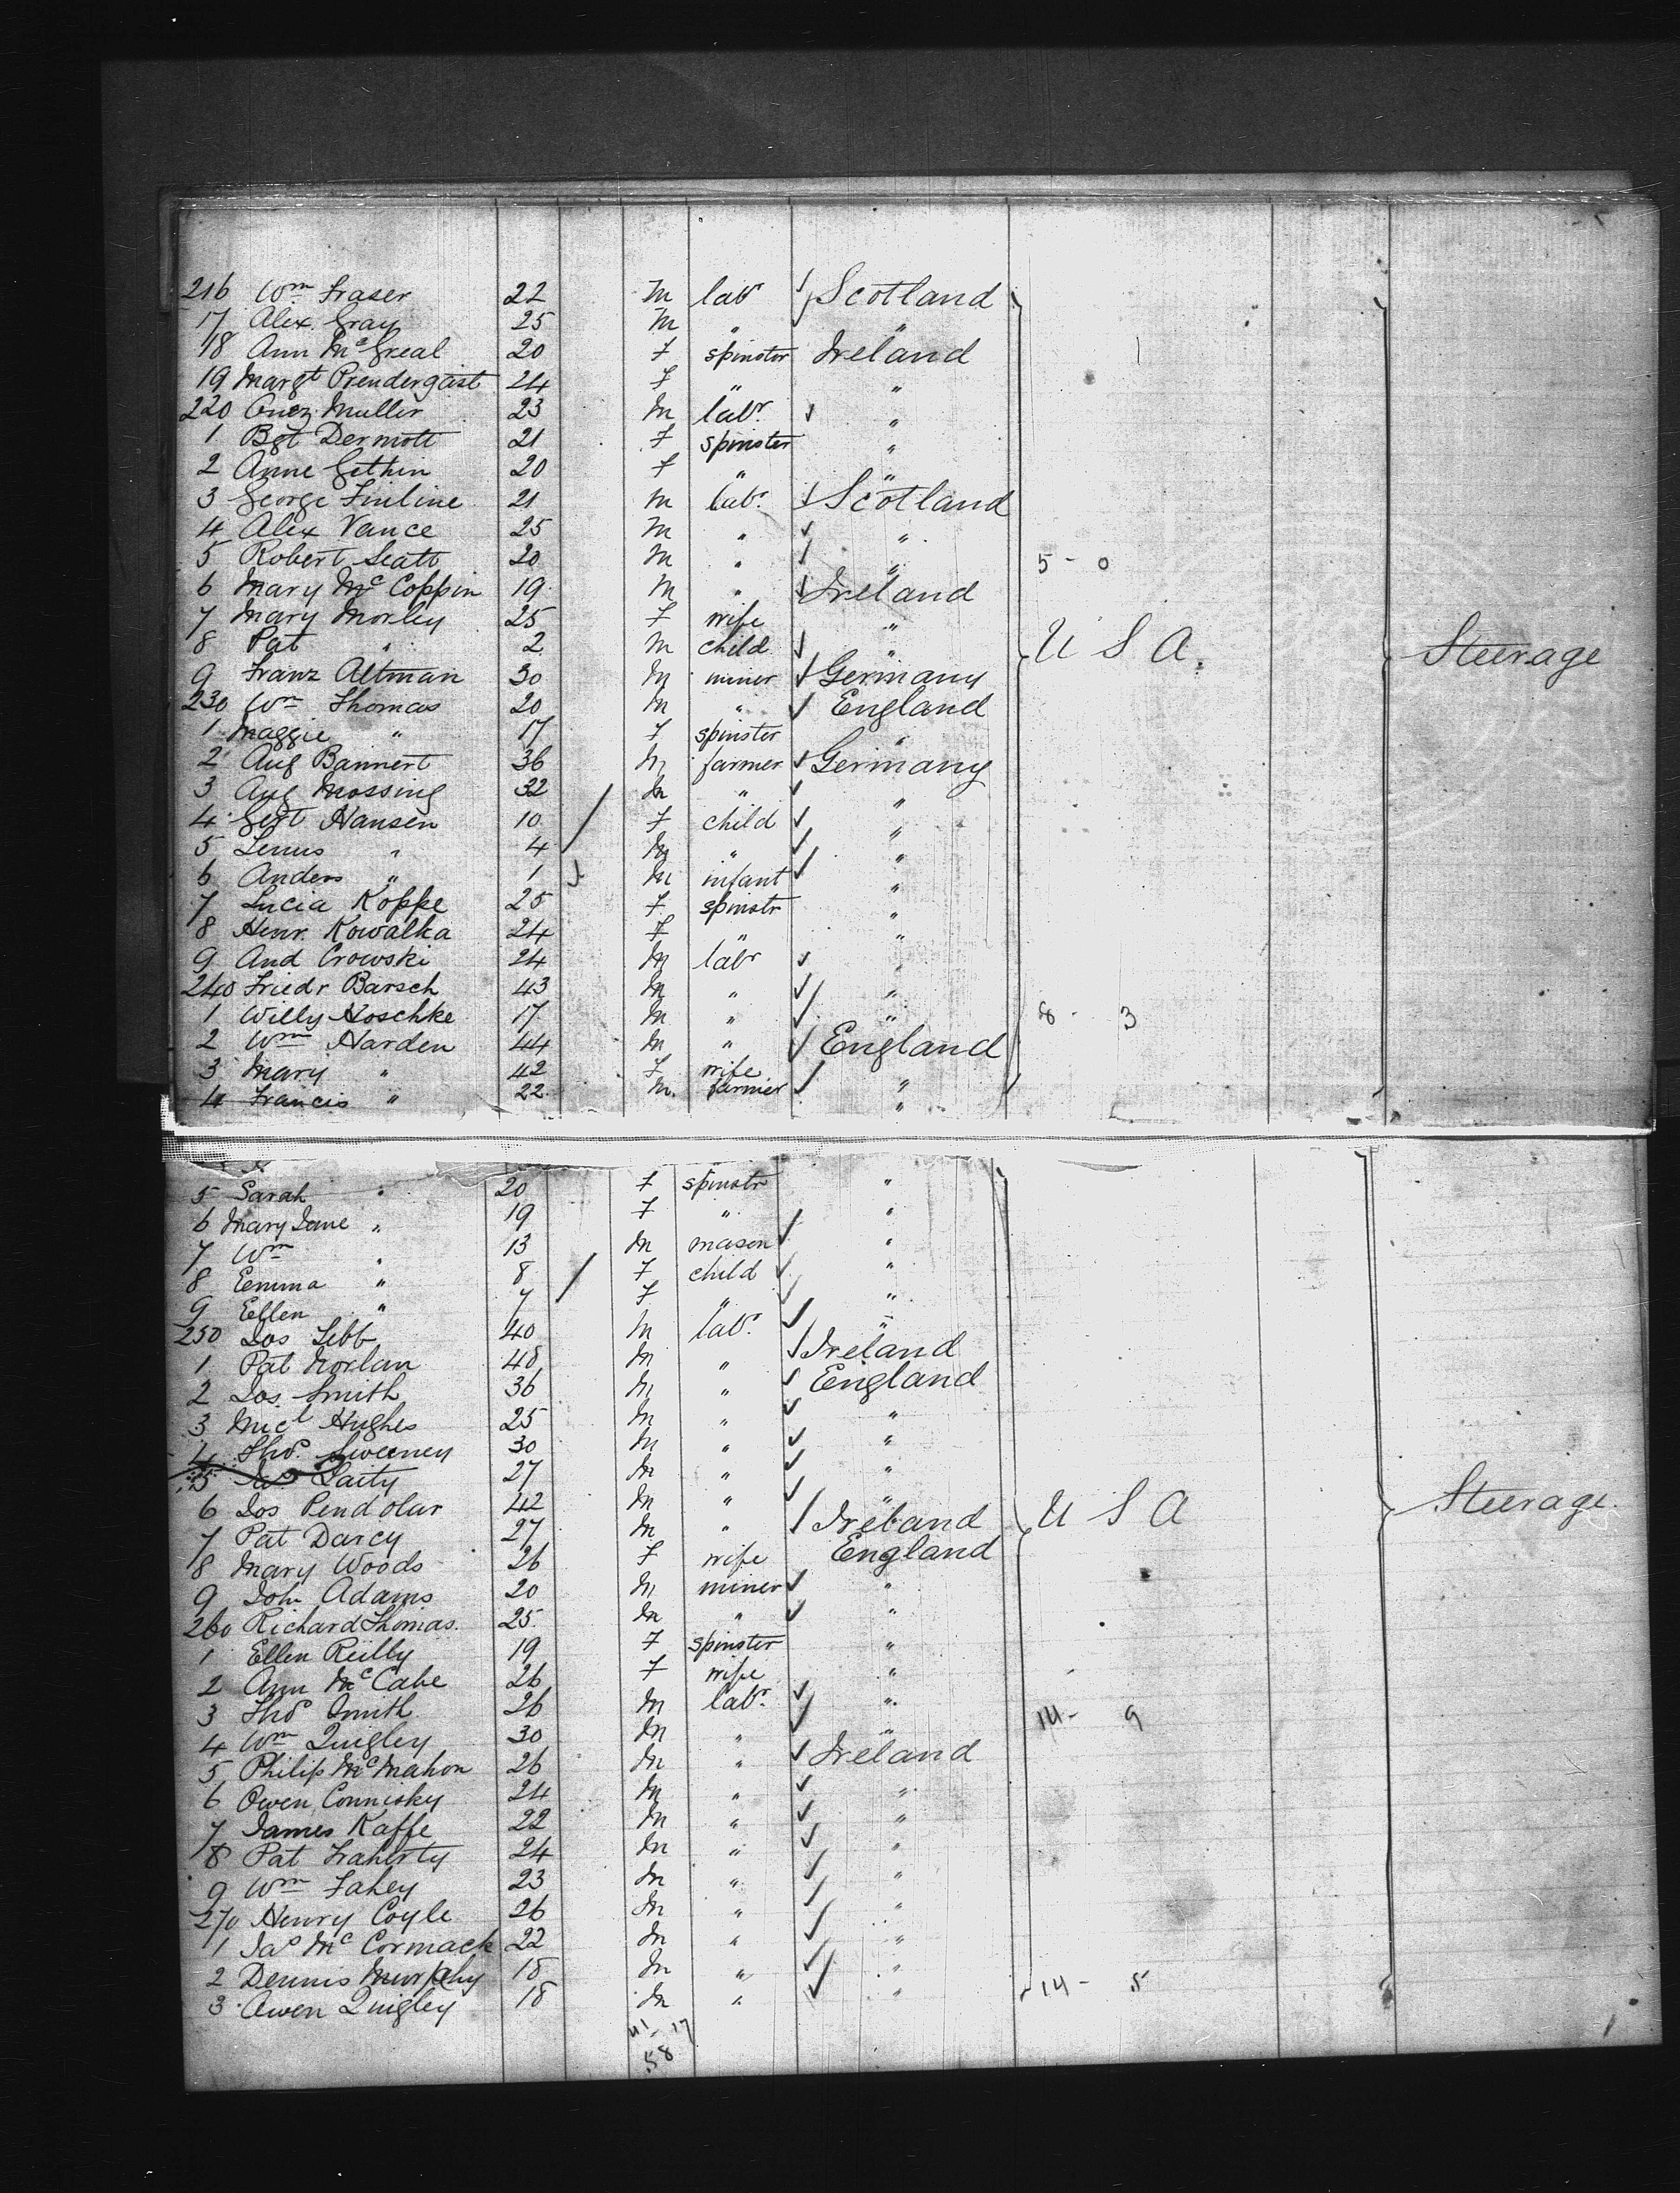 216 Wm Fraser 22 M labr Scotland
17 Alex. Gray 25 M " "
18 Ann McGreal 20 F spinster Ireland
19 Margt Prendergast 24 F " "
220 Muller 23 M labr "
1 Bgt Dermott 21 F spinster "
2 Anne Gethin 20 F " "
3 George Finline 21 M labr Scotland
4 Alex Vance 25 M " "
5 Robert Seatt 20 M " " 5 - 0
6 Mary McCoppin 19 M " Ireland
7 Mary Morley 25 F wife "
8 Pat " 2 M child " U S A. Steerage
9 Franz Altman 30 M miner Germany
230 Wm Thomas 20 M " England
1 Maggie " 17 F spinster "
2 Aug Bannert 36 M farmer Germany
3 Aug Mossing 32 M " "
4 Hansen 10 F child "
5 " 4 M " "
6 Anders " 1 M infant "
7 Lucia Koppe 25 F spinstr "
8 Henr. Kowalka 24 F " "
9 And Crowski 24 M labr "
240 Friedr Barsch 43 M " "
1 Willy Hoschke 17 M " " 8 - 3
2 Wm Harden 44 M " England
3 Mary " 42 F wife "
4 Francis " 22. M. farmer "
5 Sarah " 20 F spinstr "
6 Mary Jane " 19 F " "
7 Wm " 13 M mason "
8 Emma " 8 F child "
9 Ellen " 7 F " "
250 Jos Tebb 40 M labr. "
1 Pat Norlan 48 M " Ireland
2 Jos. Smith 36 M " England
3 Micl Hughes 25 M " "
4 Thos. Sweeney 30 M " "
5 Laity 27 M " "
6 Jos Pendolur 42 M " "
7 Pat Darcy 27 M " Ireland U S A Steerage.
8 Mary Woods 26 F wife England
9 John Adams 20 M miner "
260 Richard Thomas. 25. M " "
1 Ellen Reilly 19 F spinster "
2 Ann McCabe 26 F wife "
3 Thos Smith 26 M labr. " 14 - 9
4 Wm Quigley 30 M " "
5 Philip McMahon 26 M " Ireland
6 Owen Connisky 24 M " "
7 James Kaffe 22 M " "
8 Pat Fraherty 24 M " "
9 Wm Fahey 23 M " "
270 Henry Coyle 26 M " "
1 Jas McCormack 22 M " "
2 Dennis Murphy 18 M " "
3 Owen Quigley 18 M " " 14 - 5
41 - 17
58